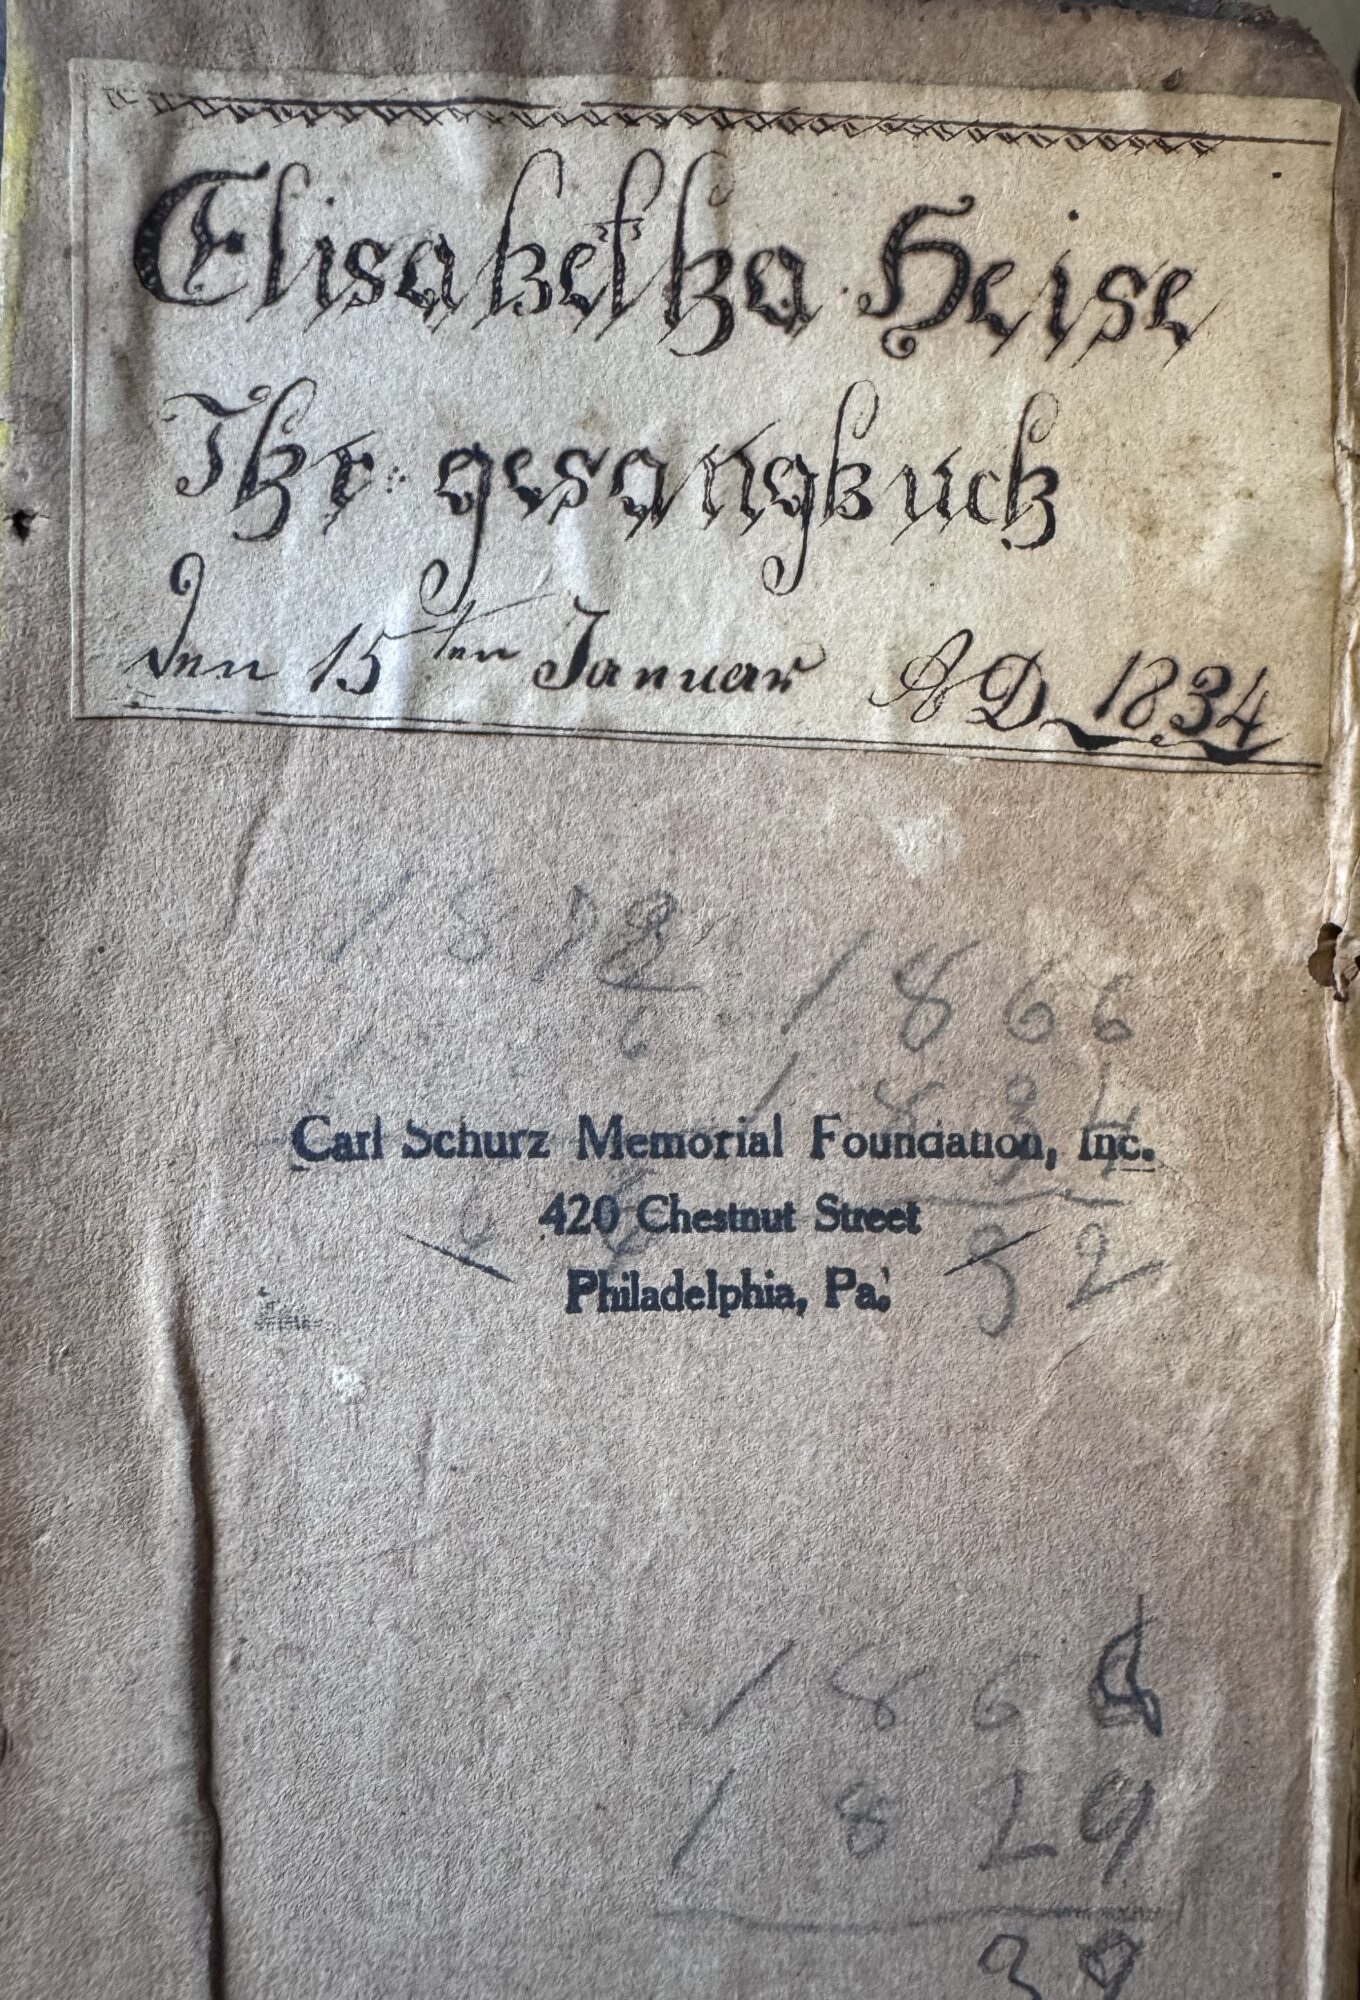 Elisabetha Heise
Ihr gesangbuch
den 15ten Januar AD 1834
1866
1834
32
Carl Schurz Memorial Foundation, Inc.
420 Chestnut Street
Philadelphia, Pa.
1829